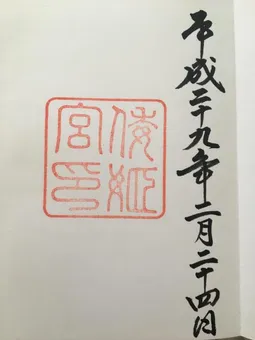 平成二十九年二月二十四日
倭姫
宮印